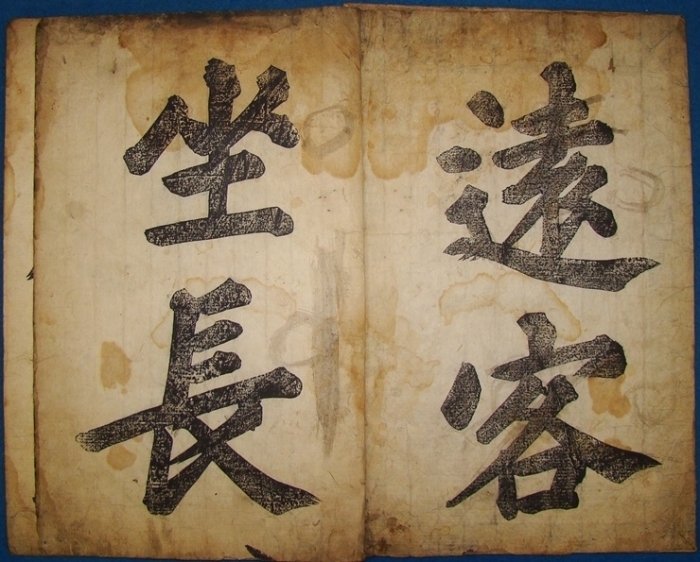 遠客
坐長